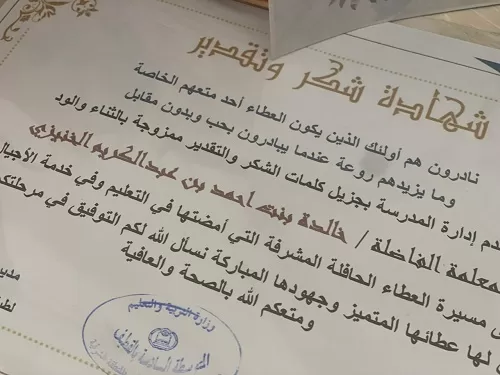 شهادة شكر وتقدير
نادرون هم أولئك الذين يكون العطاء أحد متعهم الخاصة
وما يزيدهم روعة عندما يبادرون بحب وبدون مقابل
إدارة المدرسة بجزيل كلمات الشكر والتقدير ممزوجة بالثناء والود
المعلمة الفاضلة / خالدة بنت احمد بن عبدالكريم الخنيزي
مسيرة العطاء الحافلة المشرفة التي أمضتها في التعليم وفي خدمة الأجيال
لها عطائها المتميز وجهودها المباركة نسأل الله لكم التوفيق في مرحلتكم
ومتعكم الله بالصحة والعافية
وزارة التربية والتعليم
المتوسطة السادسة بالقطيف